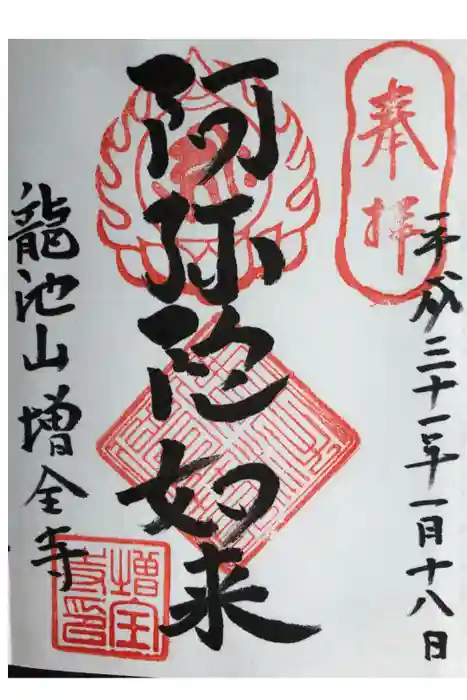 奉拝
平成三十一年一月十八日
阿弥陀如来
龍池山増全寺